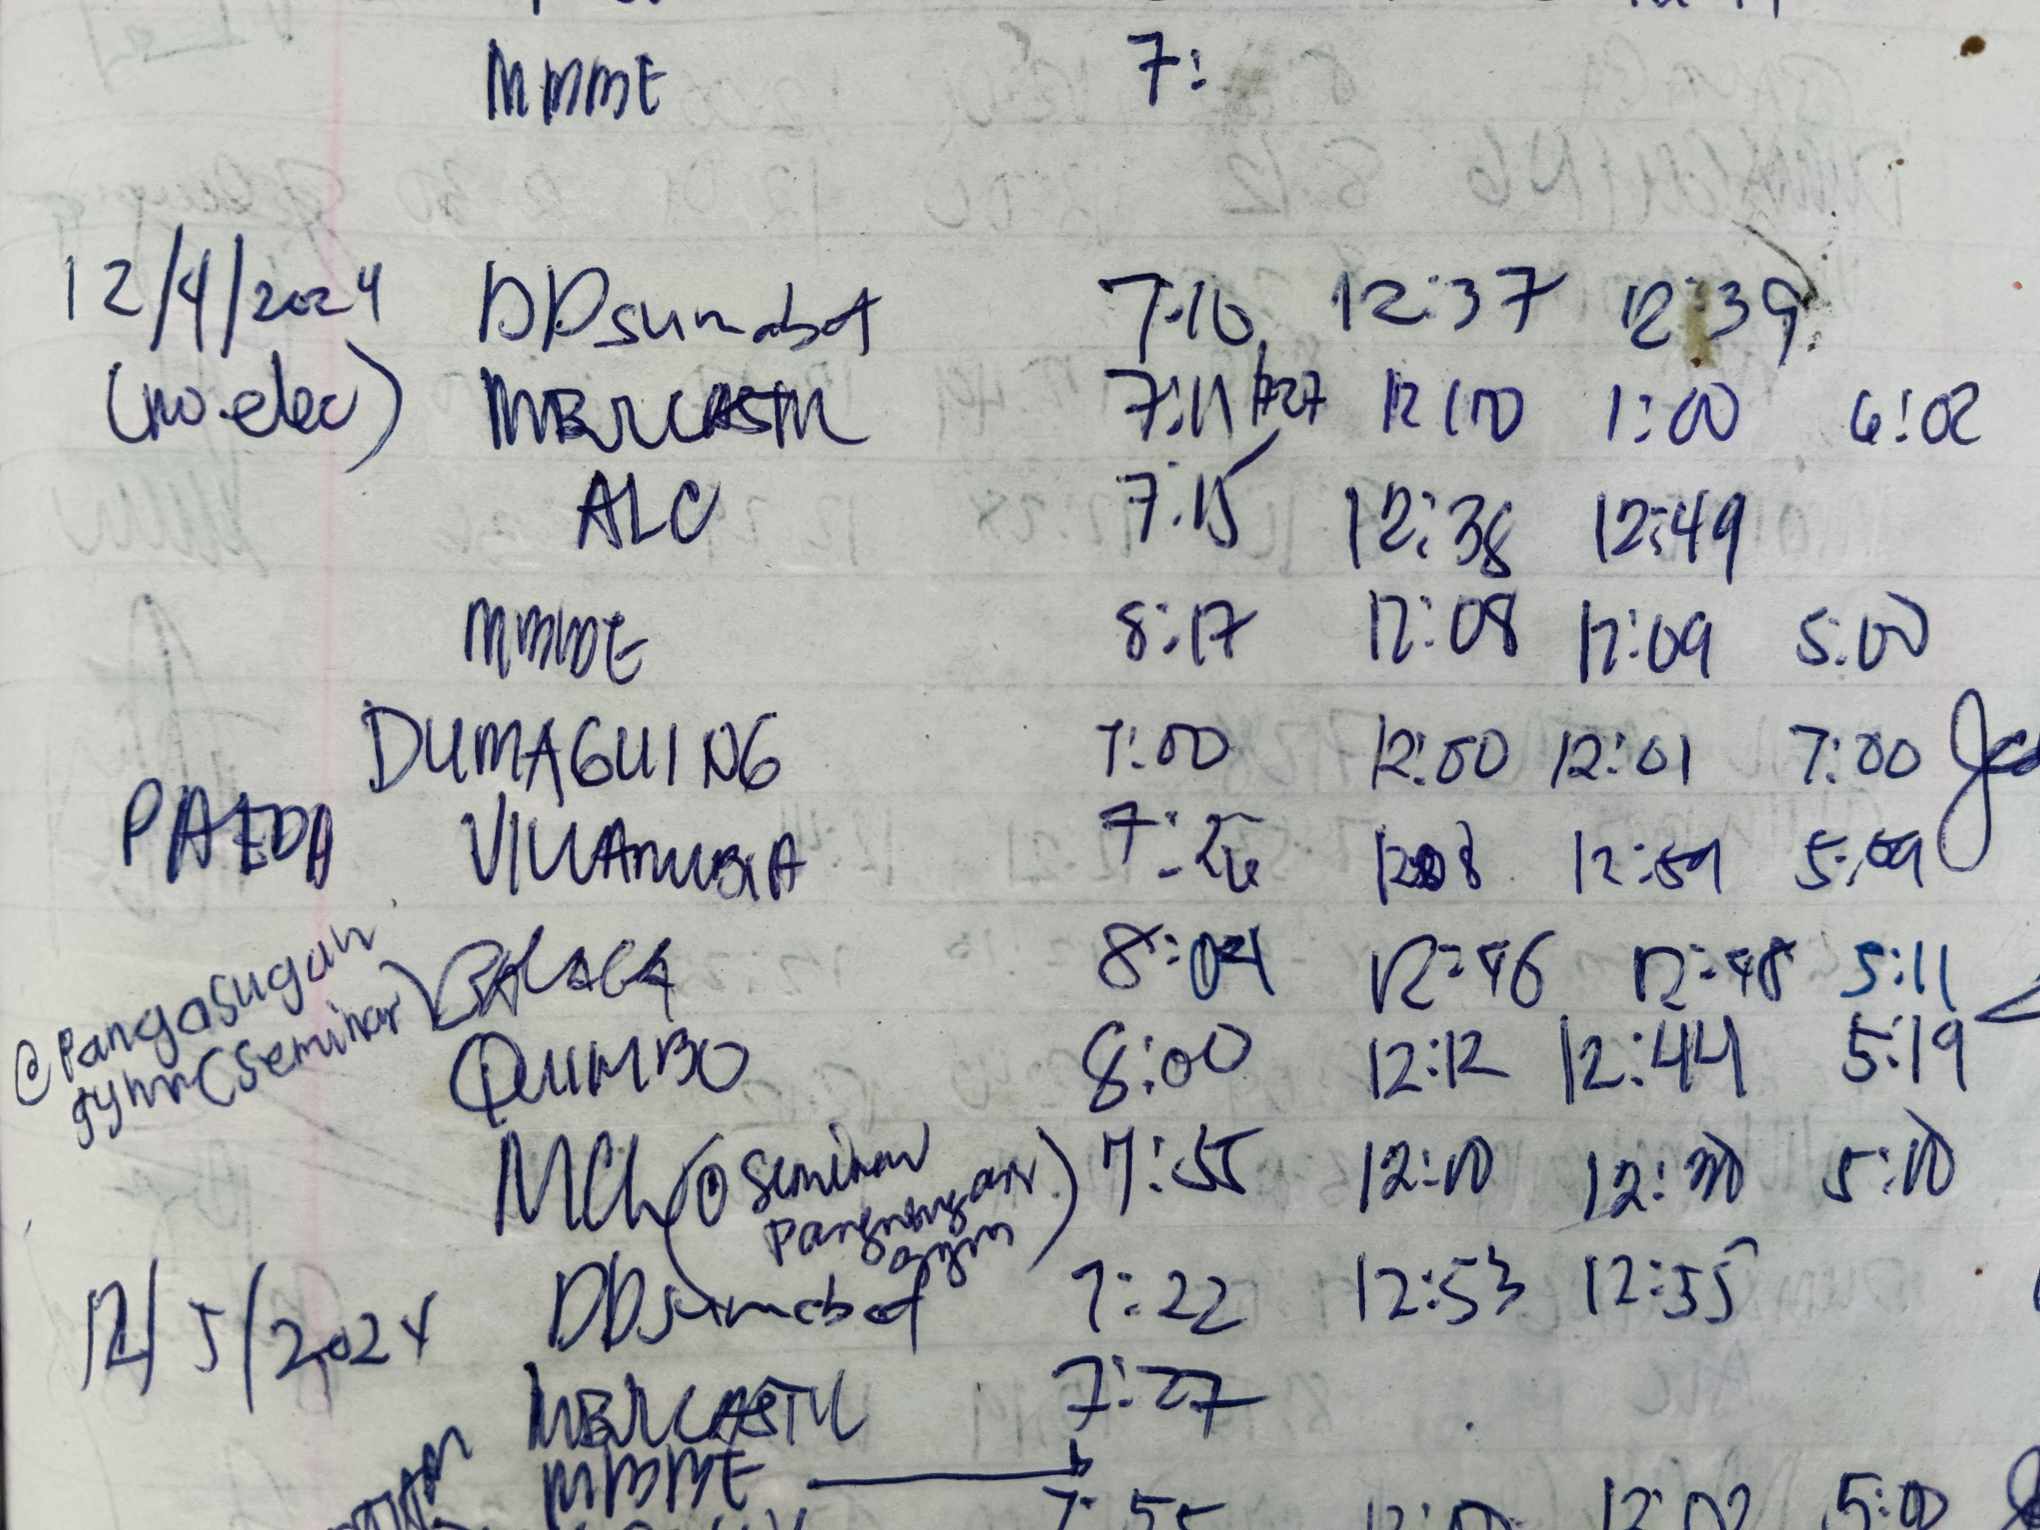 MMME 7:
12/4/2024 DDsumabat 7:10 12:37 12:39
(no elec) MERLCASTR 7:11 12:10 1:00 6:02
ALC 7:15 12:38 12:49
MMME 8:17 12:08 12:09 5:00
DUMAGUING 7:00 12:00 12:01 7:00
PAEDA VILLANUEVA 7:26 1208 12:59 5:09
@ Pangasugan
gym (Seminar) BALAGA 8:04 12:46 12:48 5:11
QUIMBO 8:00 12:12 12:44 5:19
MCh (@ Seminar 7:55 12:10 12:30 5:10
Pangasugan
gym)
12/5/2024 DDsumabat 7:22 12:53 12:55
MERLCASTR 7:27
MMME
7:55 12:02 5:00